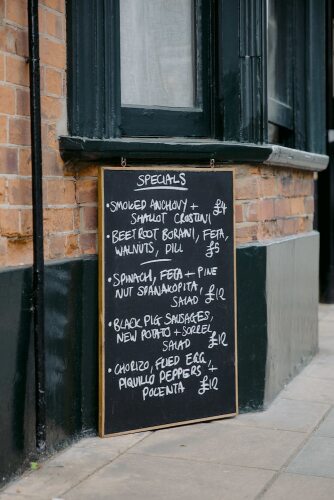 SPECIALS
• SMOKED ANCHOVY + £4
SHALLOT CROSTINI
• BEETROOT BORANI, FETA,
WALNUTS, DILL £5
• SPINACH, FETA + PINE
NUT SPANAKOPITA,
SALAD £12
• BLACK PIG SAUSAGES,
NEW POTATO + SORREL
SALAD £12
• CHORIZO, FRIED EGG,
PIQUILLO PEPPERS +
POLENTA £12